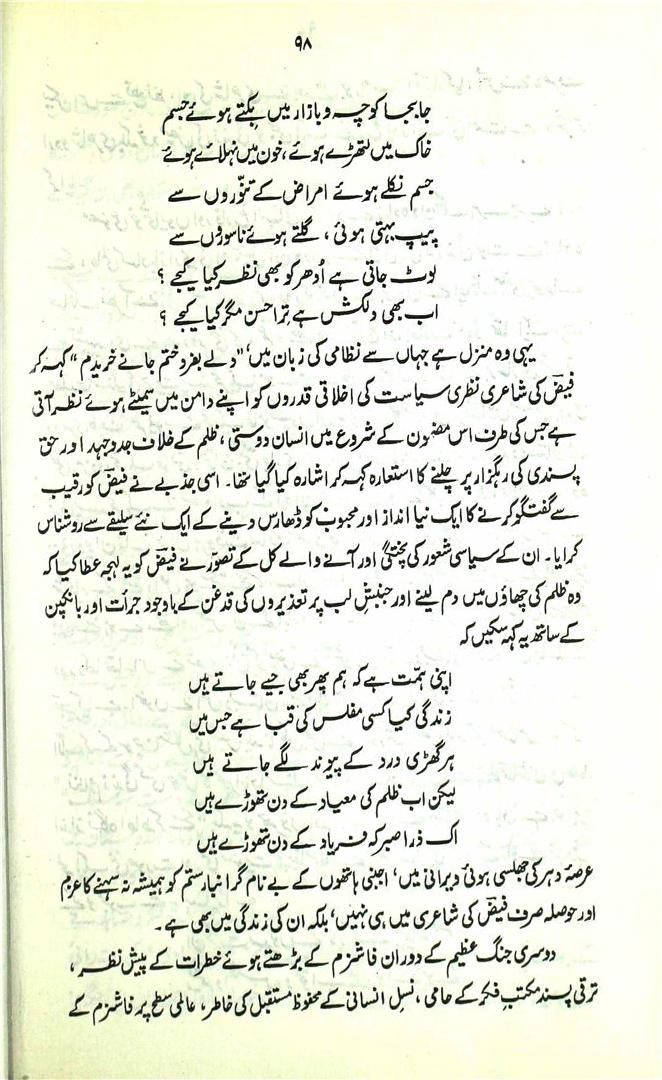 ۹۸
جابجا کوچہ و بازار میں بِکتے ہوئے جسم
خاک میں لتھڑے ہوئے، خون میں نہلائے ہوئے
جسم نکلے ہوئے امراض کے تنّوروں سے
پیپ بہتی ہوئی، گلتے ہوئے ناسوروں سے
لوٹ جاتی ہے اُدھر کو بھی نظر کیا کیجے؟
اب بھی دلکش ہے تِرا حسن مگر کیا کیجے؟
یہی وہ منزل ہے جہاں سے نظامی کی زبان میں، "دلے بفرد ختم جانے خریدم" کہہ کر
فیضؔ کی شاعری نظری سیاست کی اخلاقی قدروں کو اپنے دامن میں سمیٹے ہوئے نظر آتی
ہے جس کی طرف اس مضمون کے شروع میں انسان دوستی، ظلم کے خلاف جدوجہد اور حق
پسندی کی رہگزار پر چلنے کا استعارہ کہہ کر اشارہ کیا گیا تھا۔ اسی جذبے نے فیضؔ کو رقیب
سے گفتگو کرنے کا ایک نیا انداز اور محبوب کو ڈھارس دینے کے ایک نئے سلیقے سے روشناس
کرایا۔ ان کے سیاسی شعور کی پختگی اور آنے والے کل کے تصوّر نے فیضؔ کو یہ لہجہ عطا کیا کہ
وہ ظلم کی چھاؤں میں دم لینے اور جنبشِ لب پر تعذیروں کی قدغن کے باوجود جرأت اور بانکپن
کے ساتھ یہ کہہ سکیں کہ
اپنی ہمّت ہے کہ ہم پھر بھی جیے جاتے ہیں
زندگی کیا کسی مفلس کی قبا ہے جس میں
ہر گھڑی درد کے پیوند لگے جاتے ہیں
لیکن اب ظلم کی میعاد کے دن تھوڑے ہیں
اک ذرا صبر کہ فریاد کے دن تھوڑے ہیں
عرصۂ دہر کی جھلسی ہوئی ویرانی میں، اجنبی ہاتھوں کے بے نام گرانبار ستم کو ہمیشہ نہ سہنے کا عزم
اور حوصلہ صرف فیضؔ کی شاعری میں ہی نہیں، بلکہ ان کی زندگی میں بھی ہے۔
دوسری جنگ عظیم کے دوران فاشزم کے بڑھتے ہوئے خطرات کے پیش نظر،
ترقی پسند مکتبِ فکر کے حامی، نسلِ انسانی کے محفوظ مستقبل کی خاطر، عالمی سطح پر فاشزم کے